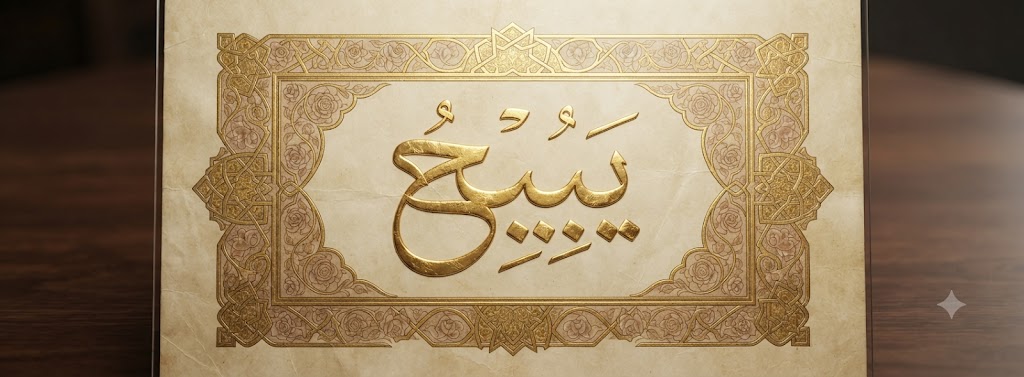 يَبُِيِْحُ